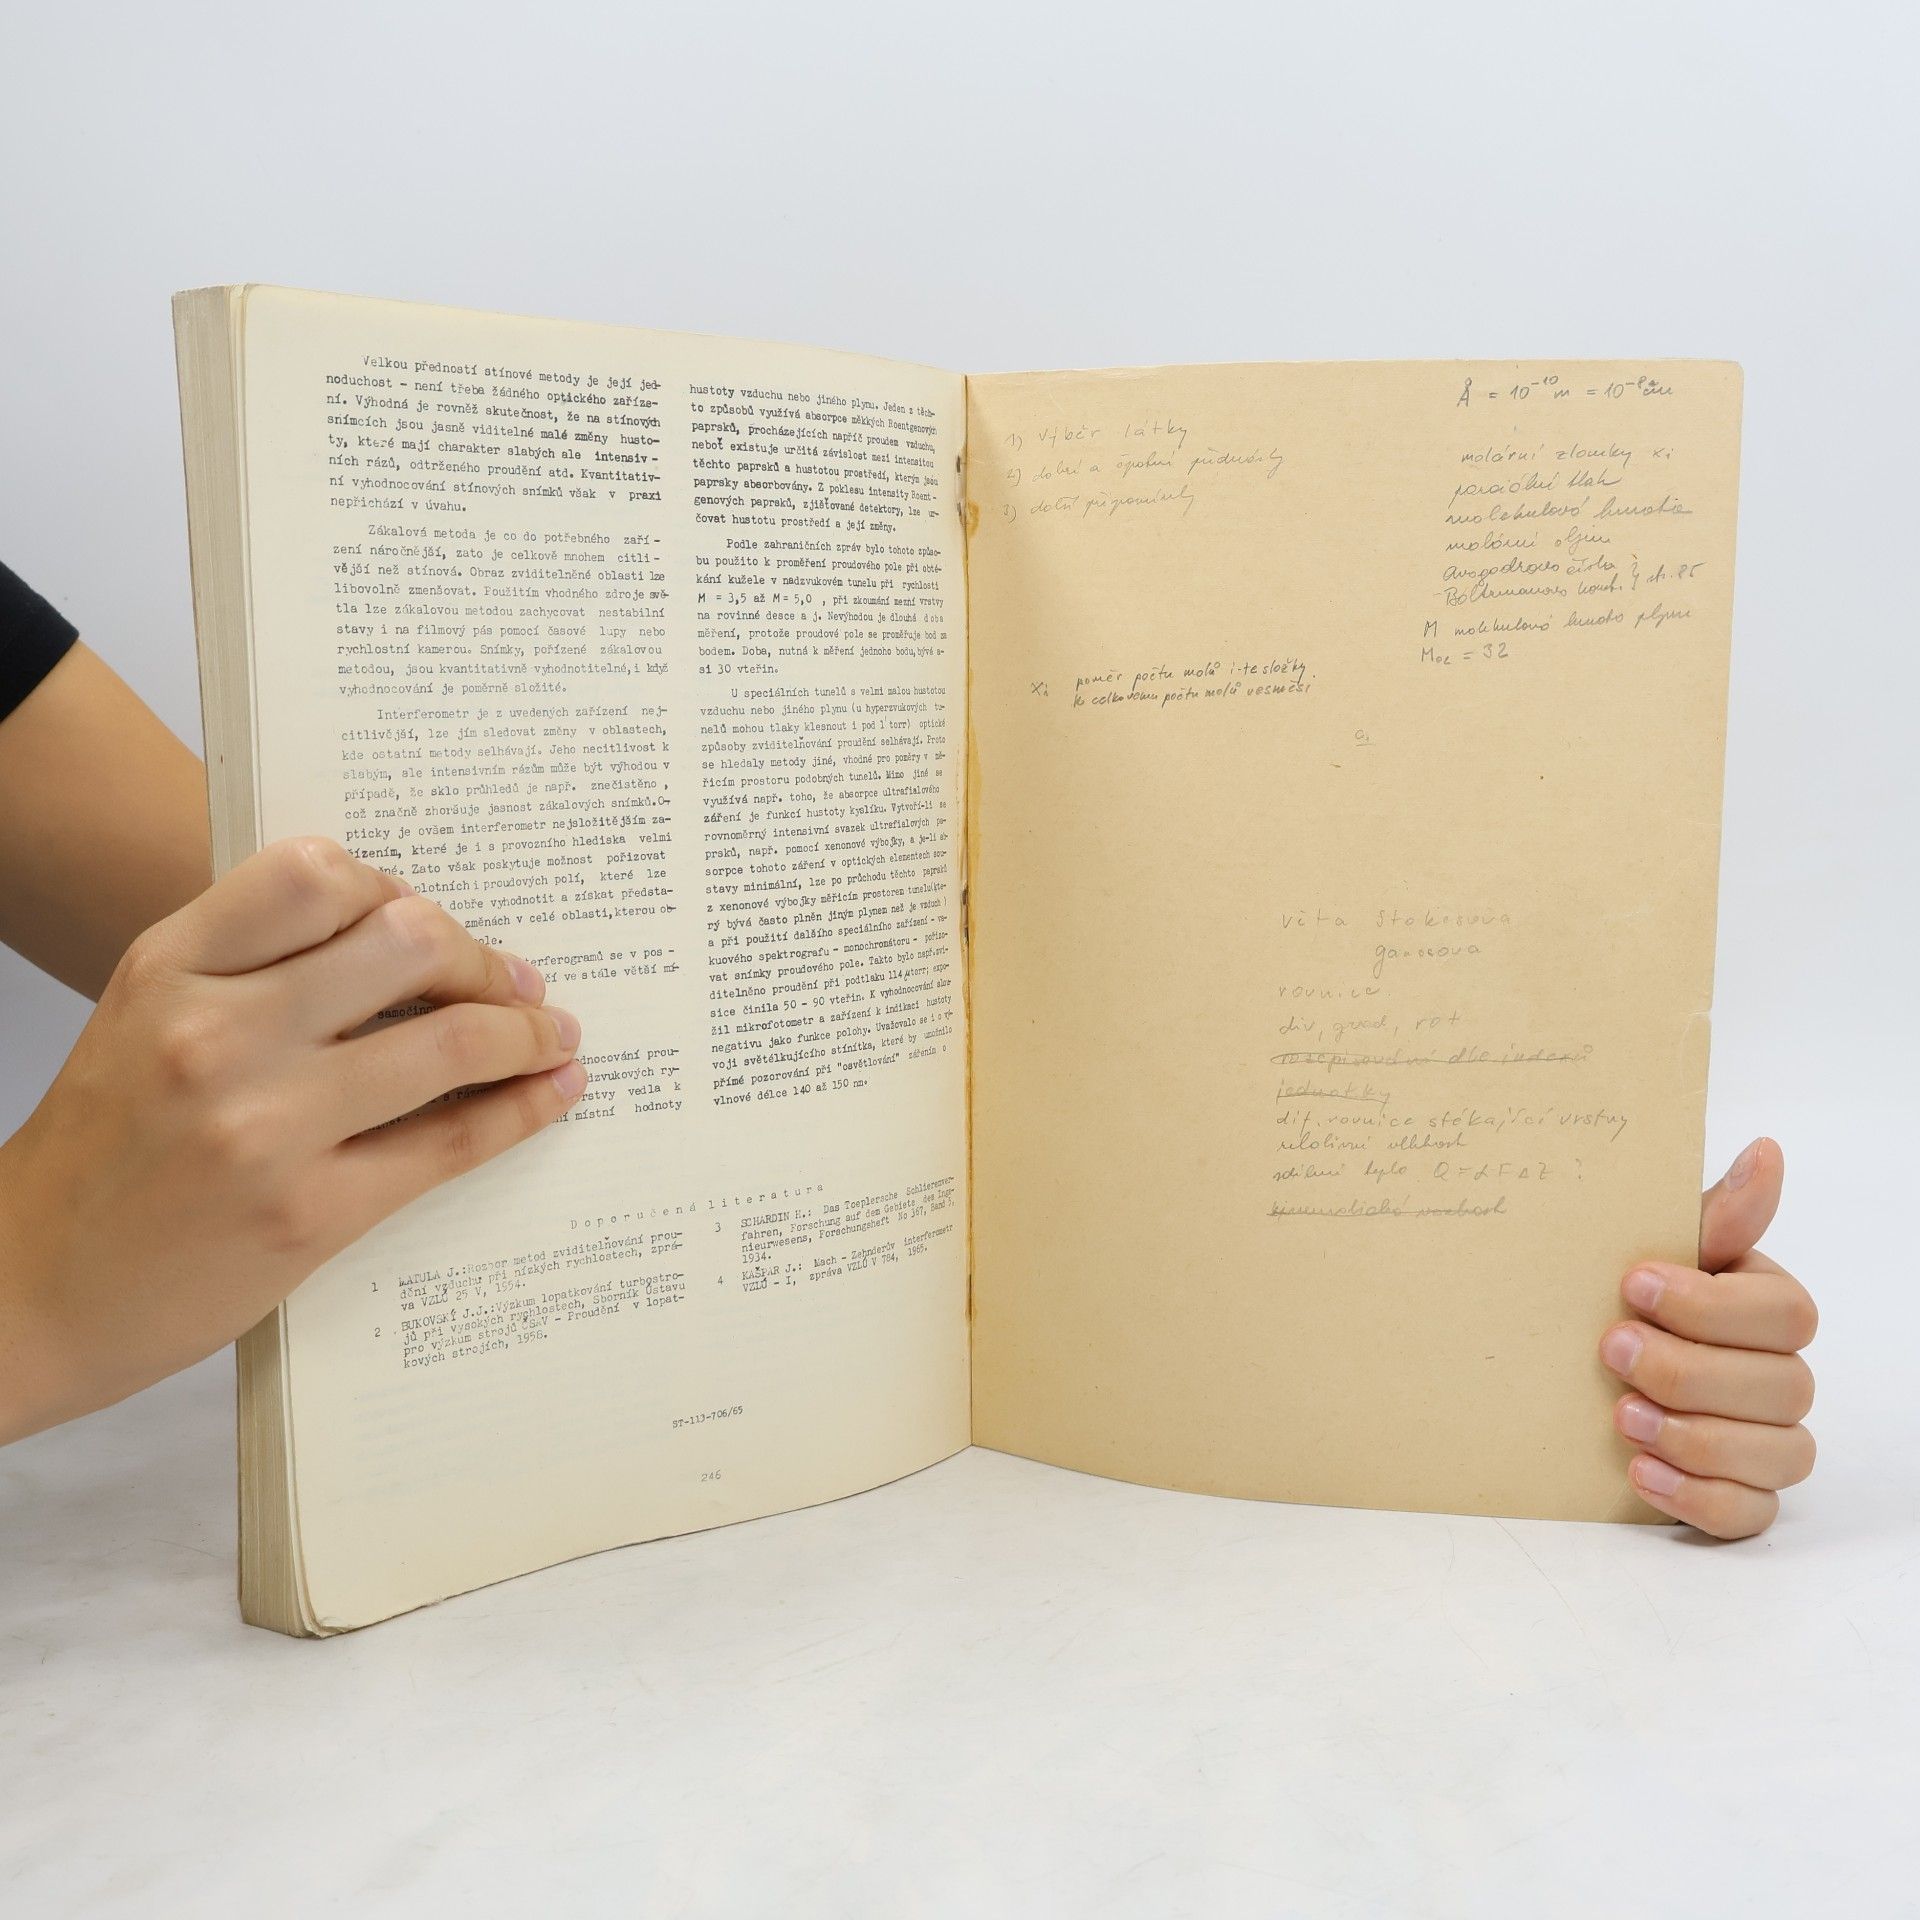 Velkou předností stínové metody je její jed-
noduchost - není třeba žádného optického zaříze-
ní. Výhodná je rovněž skutečnost, že na stínových
snímcích jsou jasně viditelné malé změny husto-
ty, které mají charakter slabých ale intensiv -
ních rázů, odtrženého proudění atd. Kvantitativ-
ní vyhodnocování stínových snímků však v praxi
nepřichází v úvahu.
Zákalová metoda je co do potřebného zaří -
zení náročnější, zato je celkově mnohem citli -
vější než stínová. Obraz zviditelněné oblasti lze
libovolně zmenšovat. Použitím vhodného zdroje svě-
tla lze zákalovou metodou zachycovat nestabilní
stavy i na filmový pás pomocí časové lupy nebo
rychlostní kamerou. Snímky, pořízené zákalovou
metodou, jsou kvantitativně vyhodnotitelné, i když
vyhodnocování je poměrně složité.
Interferometr je z uvedených zařízení nej-
citlivější, lze jím sledovat změny v oblastech,
kde ostatní metody selhávají. Jeho necitlivost k
slabým, ale intensivním rázům může být výhodou v
případě, že sklo průhledů je např. znečistěno ,
což značně zhoršuje jasnost zákalových snímků.O-
pticky je ovšem interferometr nejsložitějším za-
řízením, které je i s provozního hlediska velmi
né. Zato však poskytuje možnost pořizovat
plotních i proudových polí, které lze
dobře vyhodnotit a získat předsta-
změnách v celé oblasti, kterou ob-
ole.
terferogramů se v pos -
čí ve stále větší mí-
samočinn
dnocování prou-
dzvukových ry-
rstvy vedla k
ní místní hodnoty
hustoty vzduchu nebo jiného plynu. Jeden z těch-
to způsobů využívá absorpce měkkých Roentgenových
paprsků, procházejících napříč proudem vzduchu,
neboť existuje určitá závislost mezi intensitou
těchto paprsků a hustotou prostředí, kterým jsou
paprsky absorbovány. Z poklesu intensity Roent-
genových paprsků, zjišťované detektory, lze ur-
čovat hustotu prostředí a její změny.
Podle zahraničních zpráv bylo tohoto způso-
bu použito k proměření proudového pole při obté-
kání kužele v nadzvukovém tunelu při rychlosti
M = 3,5 až M = 5,0 , při zkoumání mezní vrstvy
na rovinné desce a j. Nevýhodou je dlouhá doba
měření, protože proudové pole se proměřuje bod za
bodem. Doba, nutná k měření jednoho bodu, bývá a-
si 30 vteřin.
U speciálních tunelů s velmi malou hustotou
vzduchu nebo jiného plynu (u hyperzvukových tu-
nelů mohou tlaky klesnout i pod 1 torr) optické
způsoby zviditelňování proudění selhávají. Proto
se hledaly metody jiné, vhodné pro poměry v mě-
řicím prostoru podobných tunelů. Mimo jiné se
využívá např. toho, že absorpce ultrafialového
záření je funkcí hustoty kyslíku. Vytvoří-li se
rovnoměrný intensivní svazek ultrafialových pa-
prsků, např. pomocí xenonové výbojky, a je-li ab-
sorpce tohoto záření v optických elementech sou-
stavy minimální, lze po průchodu těchto paprsků
z xenonové výbojky měřicím prostorem tunelu(kte-
rý bývá často plněn jiným plynem než je vzduch)
a při použití dalšího speciálního zařízení - va-
kuového spektrografu - monochromátoru - pořizo-
vat snímky proudového pole. Takto bylo např.zvi-
ditelněno proudění při podtlaku 114 μtorr; expo-
sice činila 50 - 90 vteřin. K vyhodnocování slou-
žil mikrofotometr a zařízení k indikaci hustoty
negativu jako funkce polohy. Uvažovalo se i o vý-
voji světélkujícího stínítka, které by umožnilo
přímé pozorování při "osvětlování" zářením o
vlnové délce 140 až 150 nm.
Doporučená literatura
1 MATULA J.:Rozbor metod zviditelňování prou-
dění vzduchu při nízkých rychlostech, zprá-
va VZLÚ 25 V, 1954.
2 BUKOVSKÝ J.J.:Výzkum lopatkování turbostro-
jů při vysokých rychlostech, Sborník Ústavu
pro výzkum strojů ČSAV - Proudění v lopat-
kových strojích, 1958.
3 SCHARDIN H.: Das Toeplersche Schlierenver-
fahren, Forschung auf dem Gebiete des Inge-
nieurwesens, Forschungsheft No 367, Band 5,
1934.
4 KAŠPAR J.: Mach - Zehnderův interferometr
VZLÚ - I, zpráva VZLÚ V 784, 1965.
ST-113-706/65
246
Å = 10⁻¹⁰m = 10⁻⁸cm
1) výběr látky
2) dobré a špatné přednosti
3) další připomínky
molární zlomky xi
parciální tlak
molekulová hmota
molární objem
Avogadrovo číslo
Boltzmanova konst. } str. 85
M molekulová hmota plynu
M02 = 32
xi poměr počtu molů i-té složky
ke celkovému počtu molů ve směsi
a,
věta Stokesova
gaussova
rovnice
div, grad, rot
rozepisování dle indexů
jednotky
dif. rovnice stékající vrstvy
relativní vlhkost
sdílení tepla Q = α F Δ Z ?
kinematická vazkost